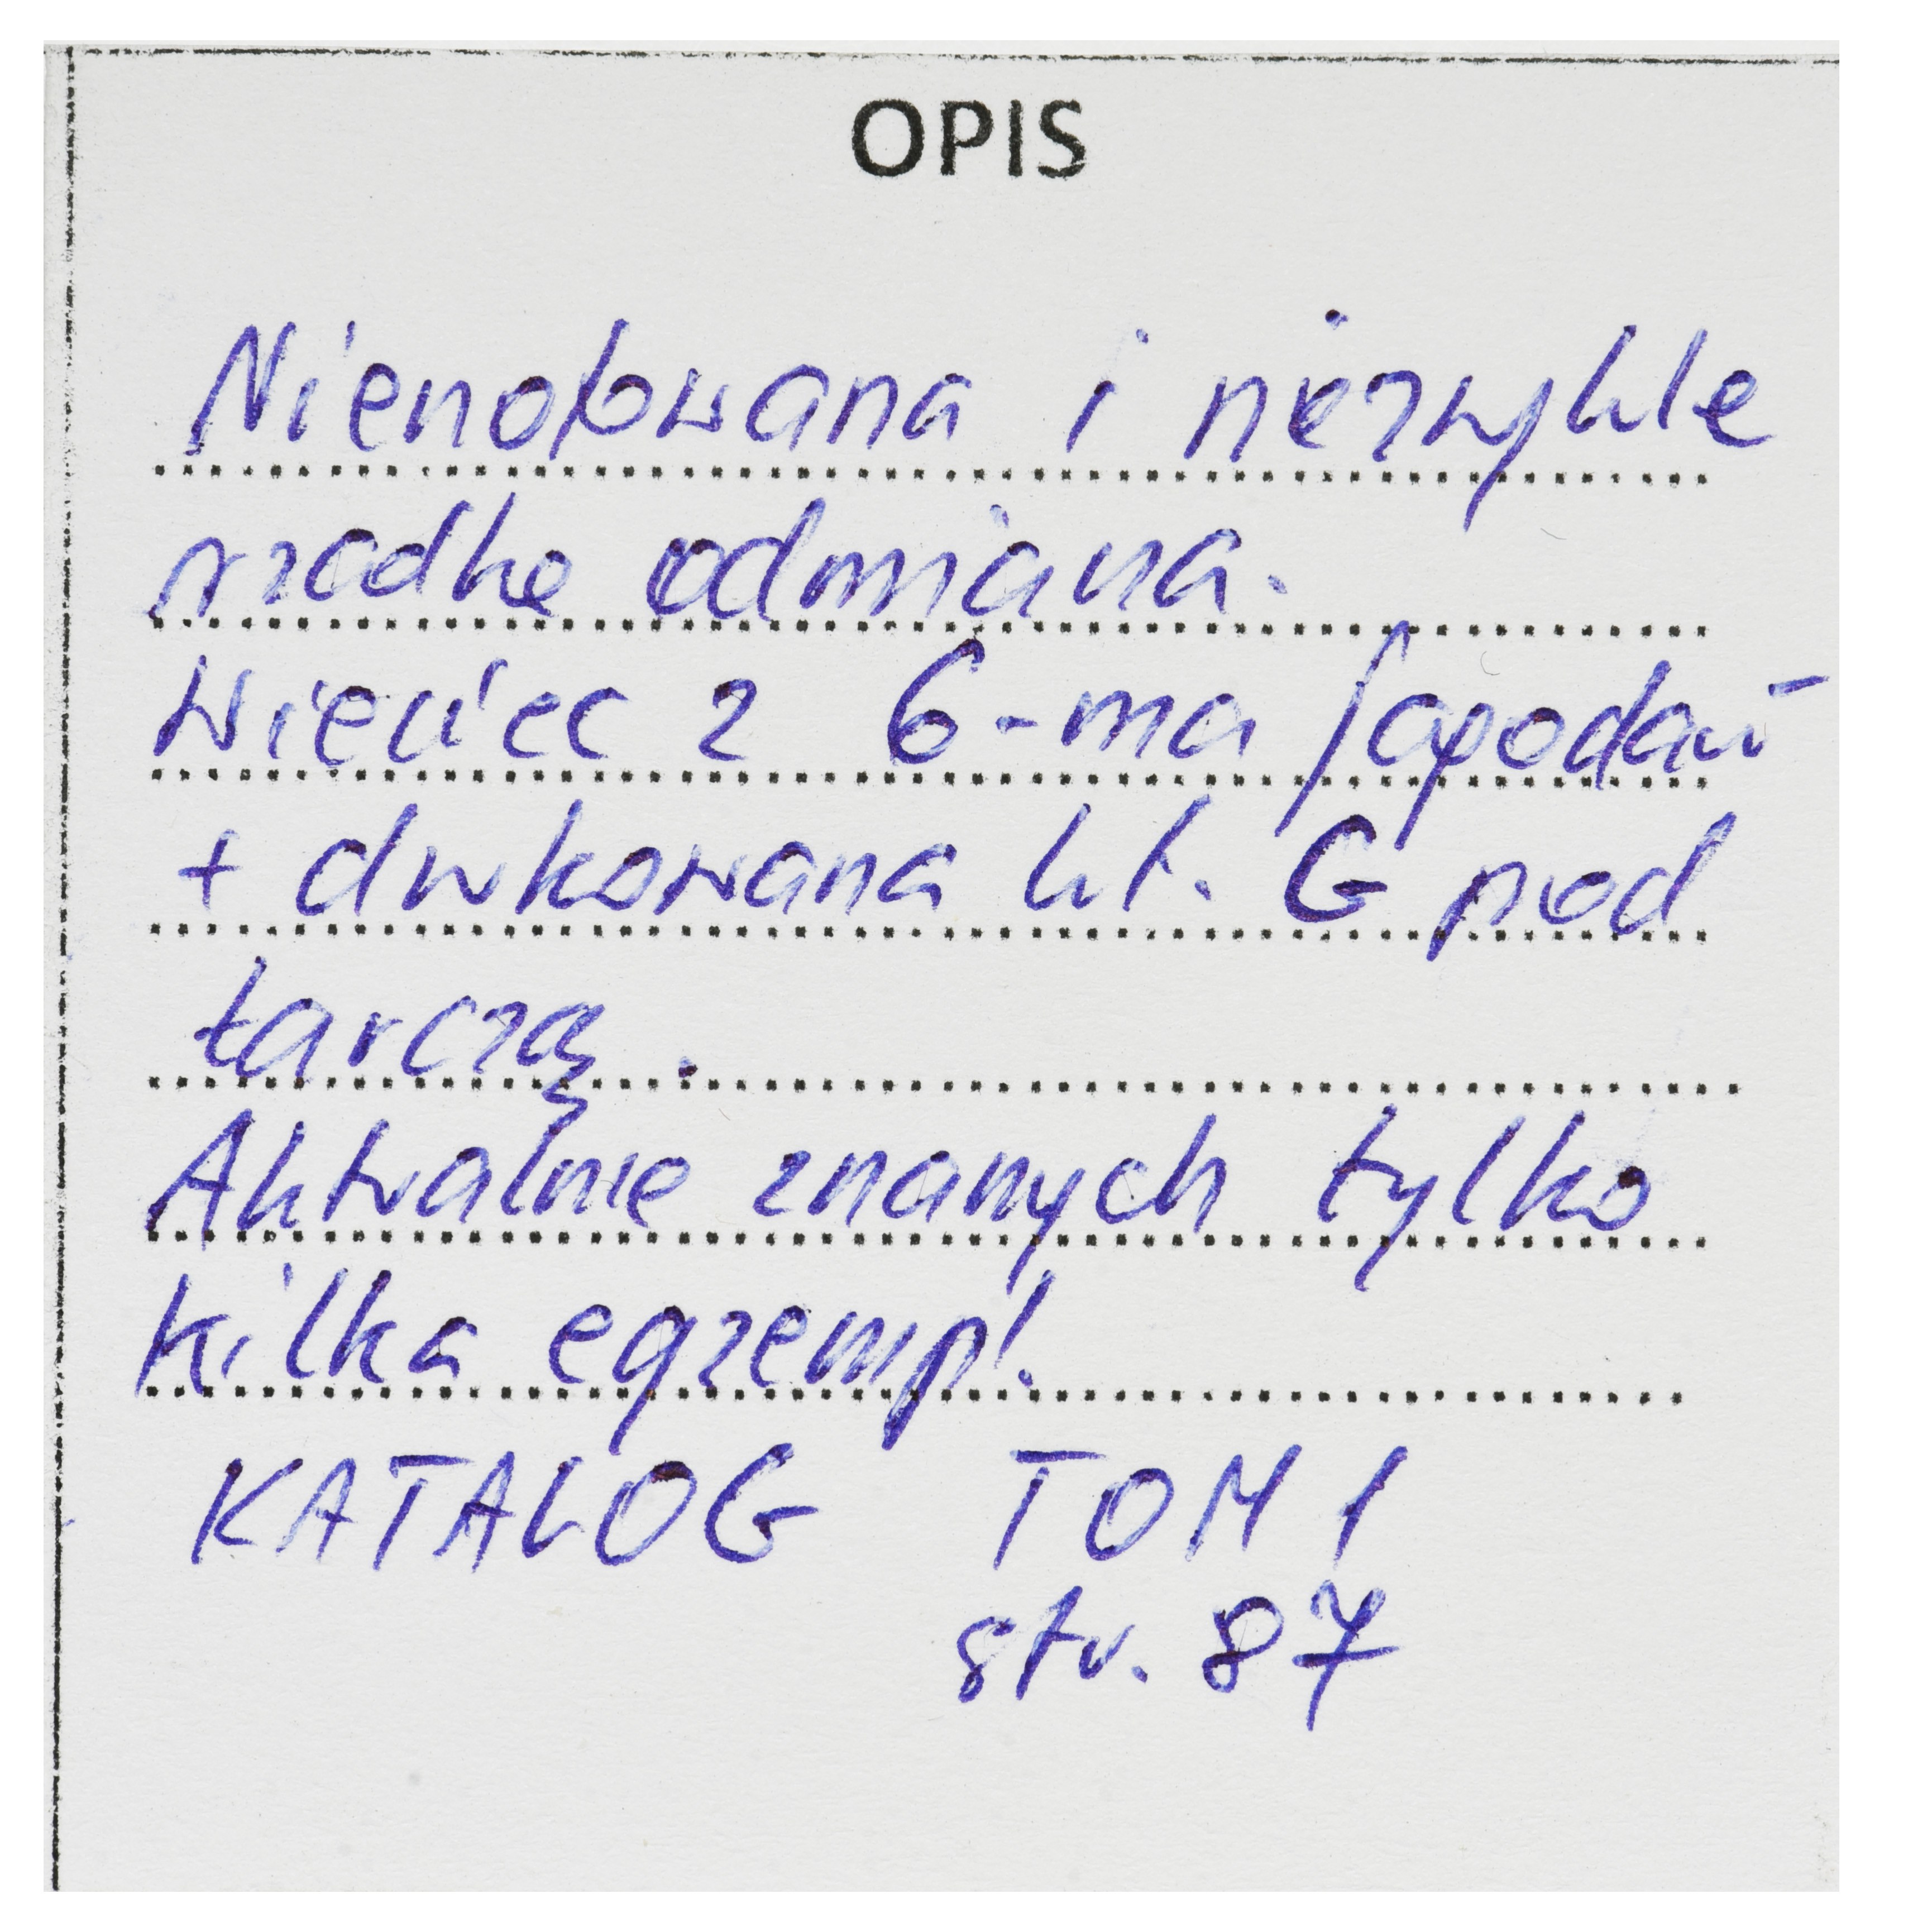 OPIS
Nienotowana i niezwykle
rzadka odmiana.
Wieniec z 6-ma
+ drukowana lit. G pod
tarczą.
Aktualnie znanych tylko
kilka egzempl.
KATALOG TOM 1
str. 87